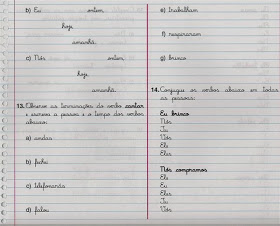 b) Eu ontem,
hoje
amanhã.
c) Nós ontem,
hoje
amanhã.
13. Observe as terminações do verbo cantar
e escreva a pessoa e o tempo dos verbos
abaixo:
a) andas
b) fechei
c) telefonarás
d) falou
e) trabalham
f) respeitaram
g) brinco
14. Conjugue os verbos abaixo em todas
as pessoas:
Eu brinco
Tu
Vós
Ele
Eles
Nós compramos
Ele
Eu
Eles
Tu
Vós